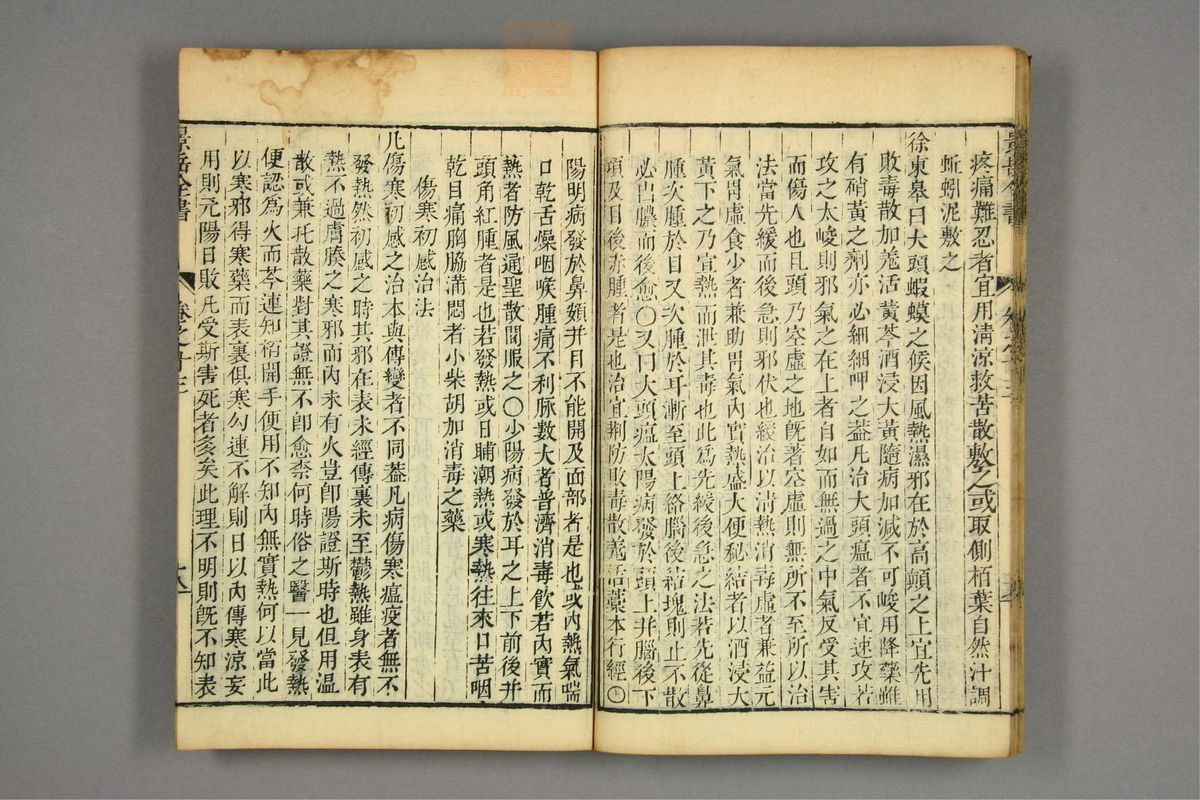 景岳全書
疼痛難忍者宜用清涼救苦散敷之或取側栢葉自然汁調
蚯蚓泥敷之
徐東皋曰大頭蝦蟆之候因風熱濕邪在於高顛之上宜先用
敗毒散加羗活黃芩酒浸大黃隨病加減不可峻用降藥雖
有硝黃之劑亦必細細呷之葢凡治大頭瘟者不宜速攻若
攻之太峻則邪氣之在上者自如而無過之中氣反受其害
而傷人也且頭乃空虛之地旣著空虛則無所不至所以治
法當先緩而後急則邪伏也緩治以清熱消毒虛者兼益元
氣胃虛食少者兼助胃氣內實熱盛大便秘結者以酒浸大
黃下之乃宣熱而泄其毒也此爲先緩後急之法若先從鼻
腫次腫於目又次腫於耳漸至頭上絡腦後結塊則止不散
必出膿而後愈〇又曰大頭瘟太陽病發於頭上并腦後下
項及目後赤腫者是也治宜荆防敗毒散羗活藁本行經〇
陽明病發於鼻頞并目不能開及面部者是也或內熱氣喘
口乾舌燥咽喉腫痛不利脉數大者普濟消毒飲若內實而
熱者防風通聖散間服之〇少陽病發於耳之上下前後并
頭角紅腫者是也若發熱或日晡潮熱或寒熱往來口苦咽
乾目痛胸脇滿悶者小柴胡加消毒之藥
傷寒初感治法
凡傷寒初感之治本與傳變者不同葢凡病傷寒瘟疫者無不
發熱然初感之時其邪在表未經傳裏未至鬱熱雖身表有
熱不過膚腠之寒邪而內未有火豈卽陽證斯時也但用温
散或兼托散藥對其證無不卽愈柰何時俗之醫一見發熱
便認爲火而芩連知栢開手便用不知內無實熱何以當此
以寒邪得寒藥而表裏俱寒勾連不解則日以內傳寒涼妄
用則元陽日敗凡受斯害死者多矣此理不明則旣不知表
景岳全書
卷之十三